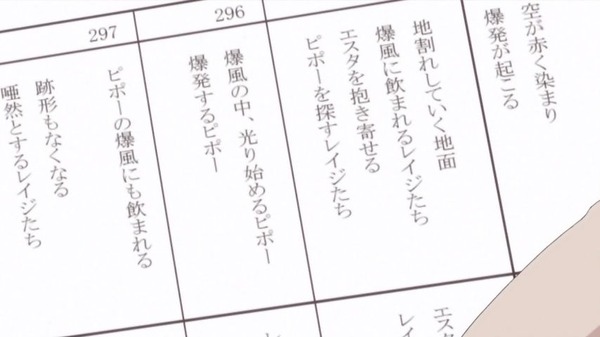 空が赤く染まり
爆発が起こる
地割れしていく地面
爆風に飲まれるレイジたち
エスタを抱き寄せる
ピポーを探すレイジたち
296
爆風の中、光り始めるピポー
爆発するピポー
297
ピポーの爆風にも飲まれる
跡形もなくなる
唖然とするレイジたち
エス
レイ